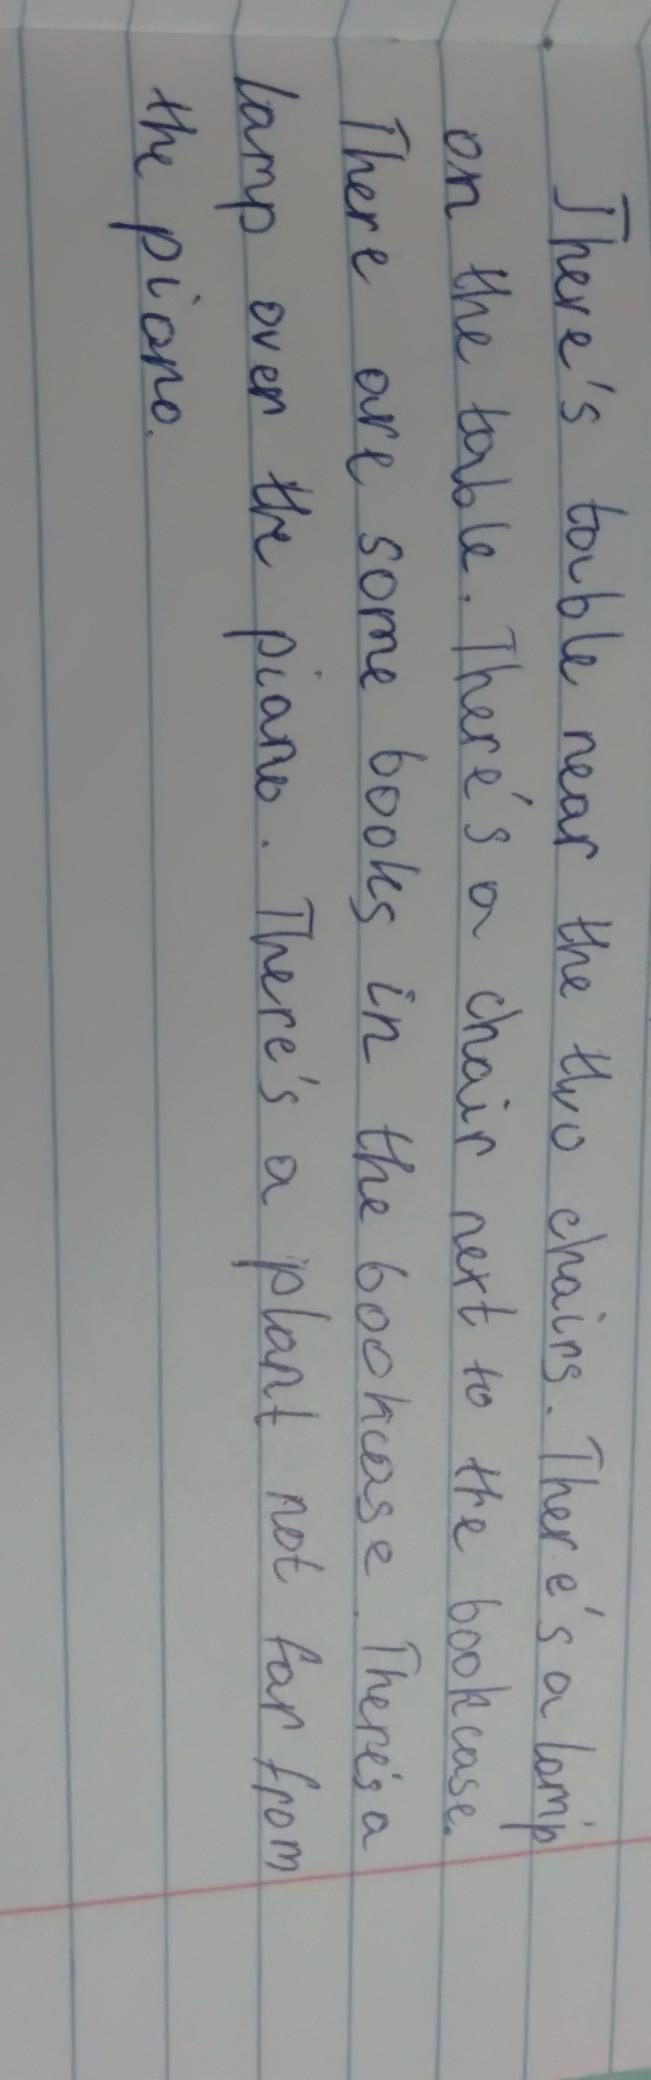 There's table near the two chairs. There's a lamp
on the table. There's a chair next to the bookcase.
There are some books in the bookcase. There's a
lamp over the piano. There's a plant not far from
the piano.